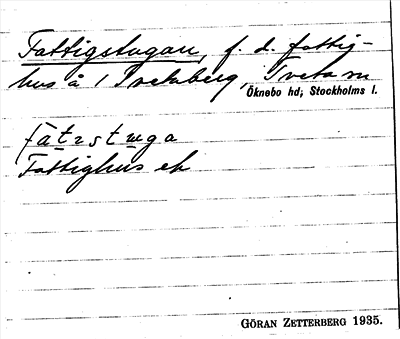 Fattigstugan, f. d. fattig-
hus å 1 Tvetaberg, Tveta sn
Öknebo hd; Stockholms l.
fàt𝑖stuga
Fattighus ek
GÖRAN ZETTERBERG 1935.